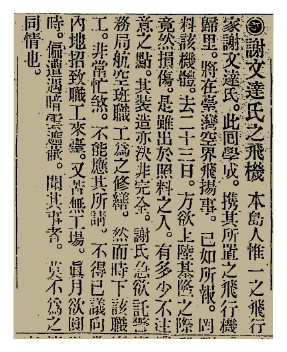 ◉謝文達氏之飛機 本島人惟一之飛行
家謝文達氏。此回學成。携其所置之飛行機
歸里。將在臺灣空界飛揚事。已如所報。罔
料該機體。去二十三日。方欲上陸基隆之際
竟然損傷。是雖出於照料之人。有多少不注
意之點。其裝造亦決非完全。謝氏急欲託警
務局航空班職工為之修繕。然而時下該職
工。非常忙煞。不能應其所請。不得已議向
內地招致職工來臺。又苦無工場。眞月欲圓
時。偏遭遇暗雲遮蔽。聞其事者。莫不為之
同情也。